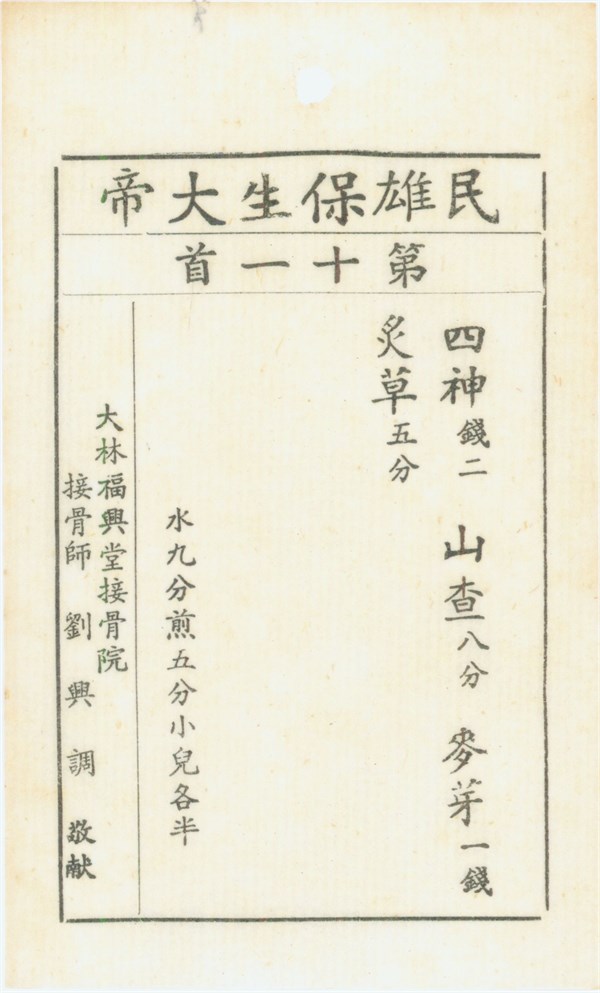 民雄保生大帝
第十一首
四神錢二　山查八分　麥芽一錢
炙草五分
水九分煎五分小兒各半
大林福興堂接骨院
接骨師　劉興調　敬献